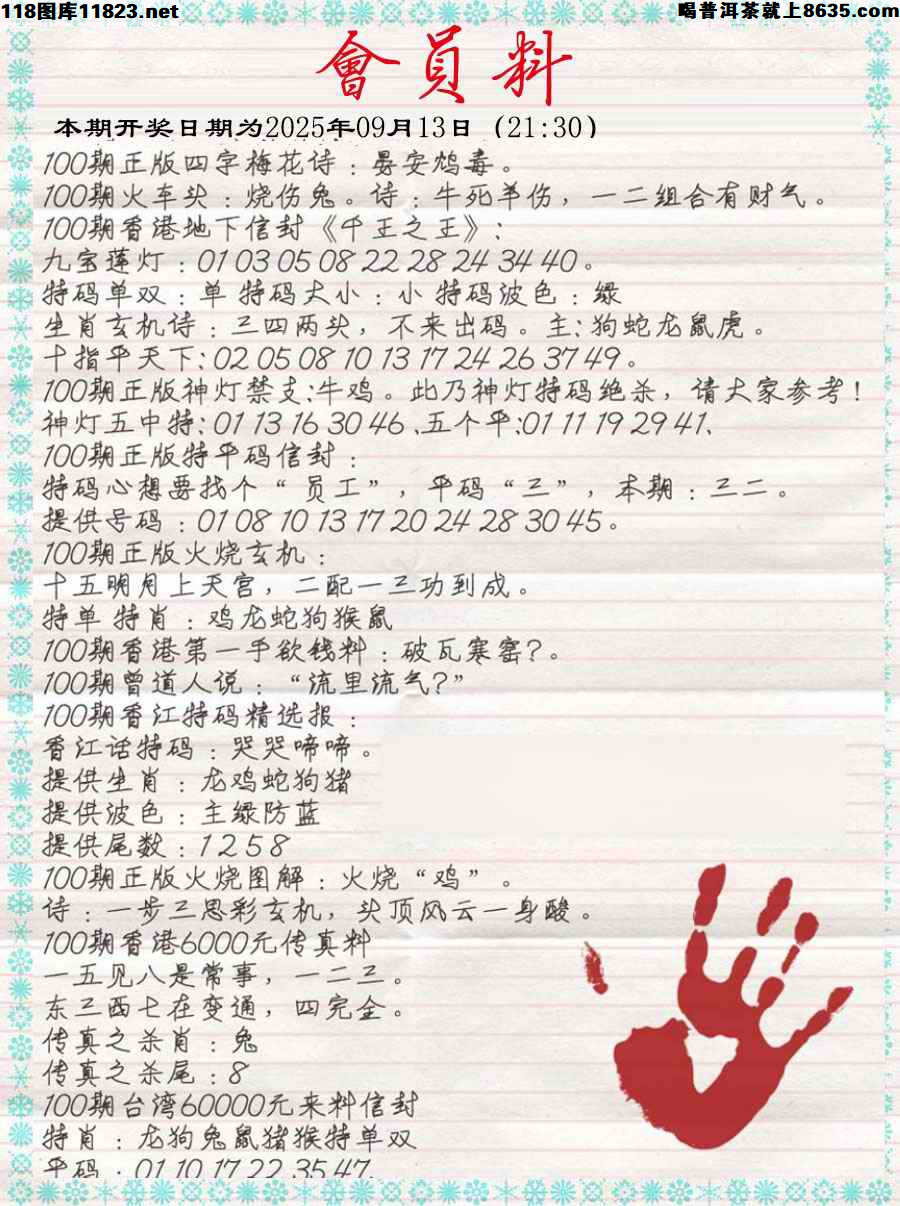 118图库11823.net
喝普洱茶就上8635.com
會員料
本期开奖日期为2025年09月13日（21:30）
100期正版四字梅花诗：晏安鸩毒。
100期火车头：烧伤兔。诗：牛死羊伤，一二组合有财气。
100期香港地下信封《千王之王》:
九宝莲灯：01 03 05 08 22 28 24 34 40。
特码单双：单 特码大小：小 特码波色：绿
生肖玄机诗：三四两头，不来出码。主:狗蛇龙鼠虎。
十指平天下:02 05 08 10 13 17 24 26 37 49。
100期正版神灯禁支:牛鸡。此乃神灯特码绝杀，请大家参考！
神灯五中特:01 13 16 30 46 、五个平:01 11 19 29 41、
100期正版特平码信封：
特码心想要找个“员工”，平码“三”，本期：三二。
提供号码：01 08 10 13 17 20 24 28 30 45。
100期正版火烧玄机：
十五明月上天宫，二配一三功到成。
特单 特肖：鸡龙蛇狗猴鼠
100期香港第一手欲钱料：破瓦寒窑?。
100期曾道人说：“流里流气?”
100期香江特码精选报：
香江话特码：哭哭啼啼。
提供生肖：龙鸡蛇狗猪
提供波色：主绿防蓝
提供尾数：1 2 5 8
100期正版火烧图解：火烧“鸡”。
诗：一步三思彩玄机，头顶风云一身酸。
100期香港6000元传真料
一五见八是常事，一二三。
东三西七在变通，四完全。
传真之杀肖：兔
传真之杀尾：8
100期台湾60000元来料信封
特肖：龙狗兔鼠猪猴特单双
平码：01 10 17 22 35 47